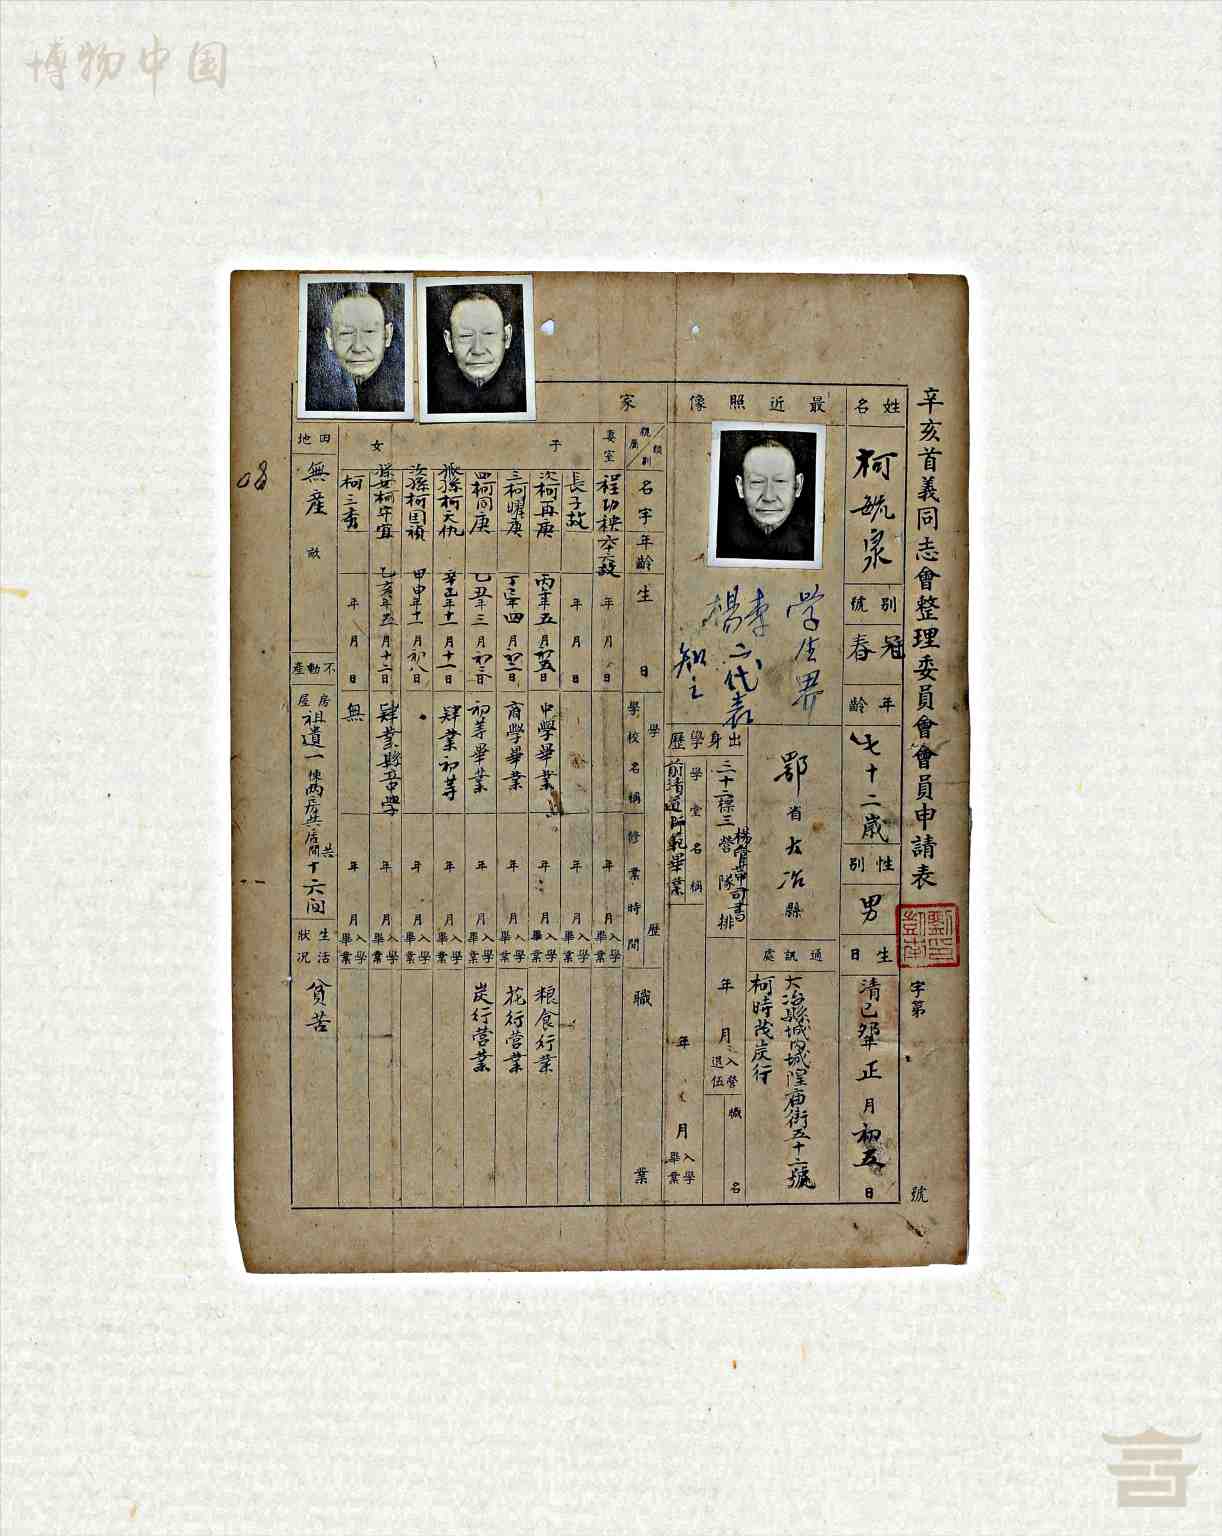 博物中国
辛亥首義同志會整理委員會會員申請表
字第
號
姓名
柯毓泉
別號
冠春
年齡
七十二歲
性別
男
生日
清己卯年正月初五日
最近照像
学生界
李楊二代表
知之
鄂省大冶縣
通訊處
大冶縣城內城隍庙街五十二號
柯時茂炭行
出身學歷
三十二標三營隊排
楊管帶司書
年月入營退伍
職名
學堂名稱
前清道師範畢業
年月入學畢業
家
親屬類別
名字
年齡
生日
學歷
學校名稱
修業時間
職業
妻室
程功秧
年月日
年月入學畢業
子女
長子故
年月日
年月入學畢業
次柯再庚
丙年五月初五日
中學畢業
年月入學畢業
粮食行業
三柯曜庚
丁巳年四月初二日
商學畢業
年月入學畢業
花行营業
四柯同庚
乙丑年三月初三日
初等畢業
年月入學畢業
炭行营業
孫柯天仇
辛巳年十一月十一日
肄業初等
年月入學畢業
次孫柯国禎
甲申年十一月初八日
年月入學畢業
孫女柯年宜
乙亥年五月十二日
肄業縣立中學
年月入學畢業
柯三秀
年月日
無
年月入學畢業
田地
無產
畝
不動產
房屋
祖遺一棟两房共
十六间
生活狀況
貧苦